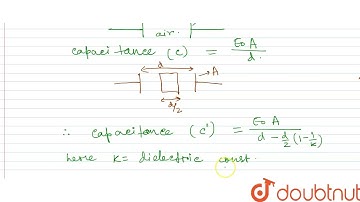 air.
capacitance (c) = ε0 A / d.
d
A
d/2
∴ capacitance (c') = ε0 A / d - d/2 (1 - 1/k)
here k= dielectric const.
doubtnut